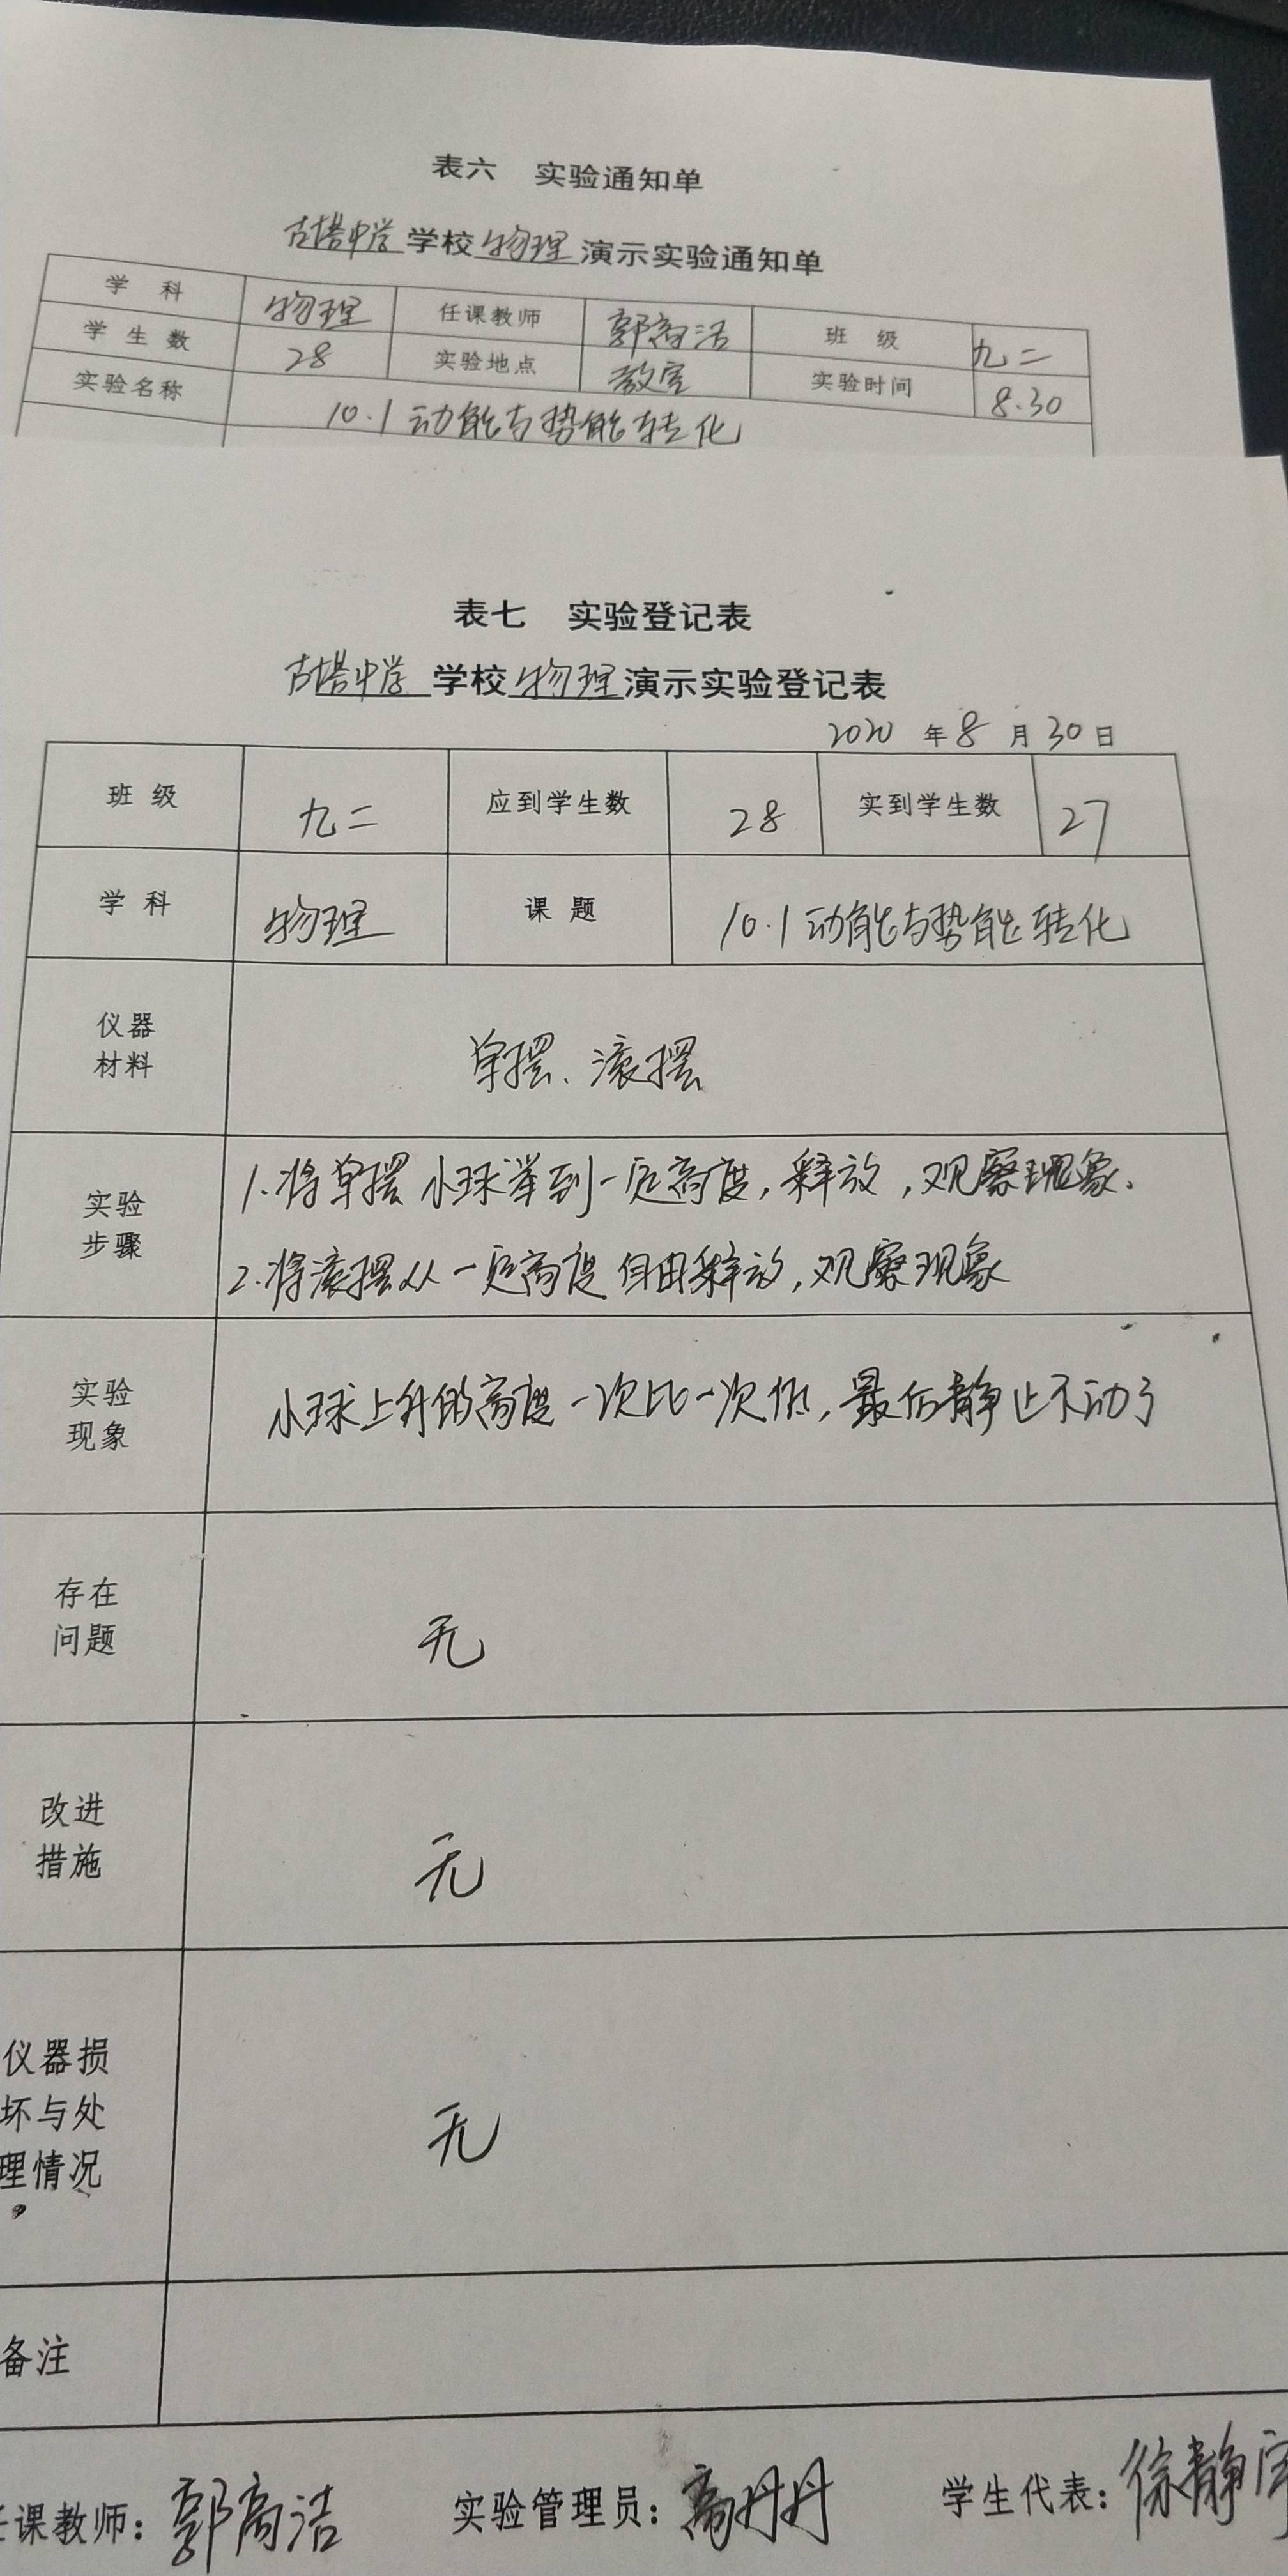 表六 实验通知单
古塔中学 学校 物理 演示实验通知单
学 科 物理 任课教师 郭高洁 班 级 九二
学 生 数 28 实验地点 教室 实验时间 8.30
实验名称 10.1 动能与势能转化
表七 实验登记表
古塔中学 学校 物理 演示实验登记表
2020 年 8 月 30 日
班 级 九二 应到学生数 28 实到学生数 27
学 科 物理 课 题 10.1 动能与势能转化
仪器
材料
单摆、滚摆
实验
步骤
1.将单摆小球举到一定高度,释放,观察现象.
2.将滚摆从一定高度自由释放,观察现象
实验
现象
小球上升的高度一次比一次低,最后静止不动了
存在
问题
无
改进
措施
无
仪器损
坏与处
理情况
无
备注
任课教师: 郭高洁 实验管理员: 高丹丹 学生代表: 徐静宇